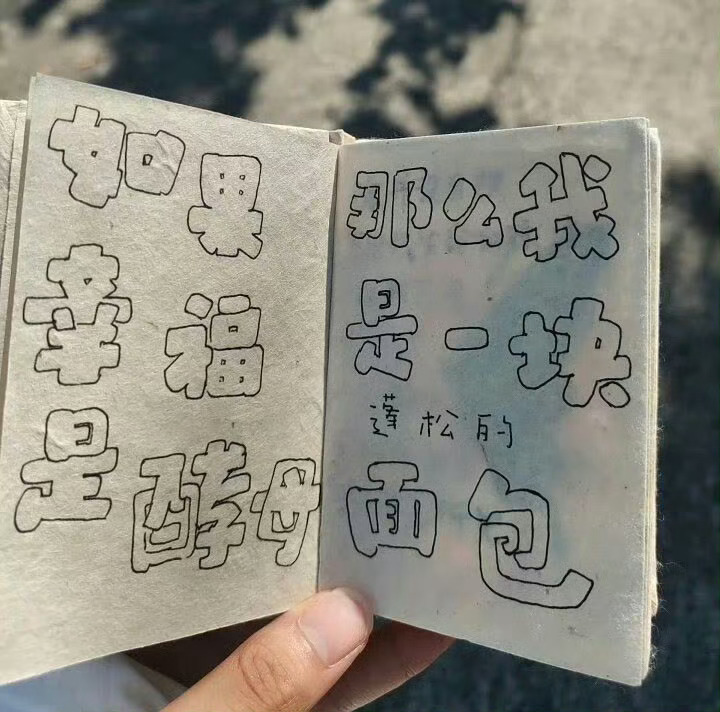 如果
幸福
是酵母
那么我
是一块
蓬松的
面包